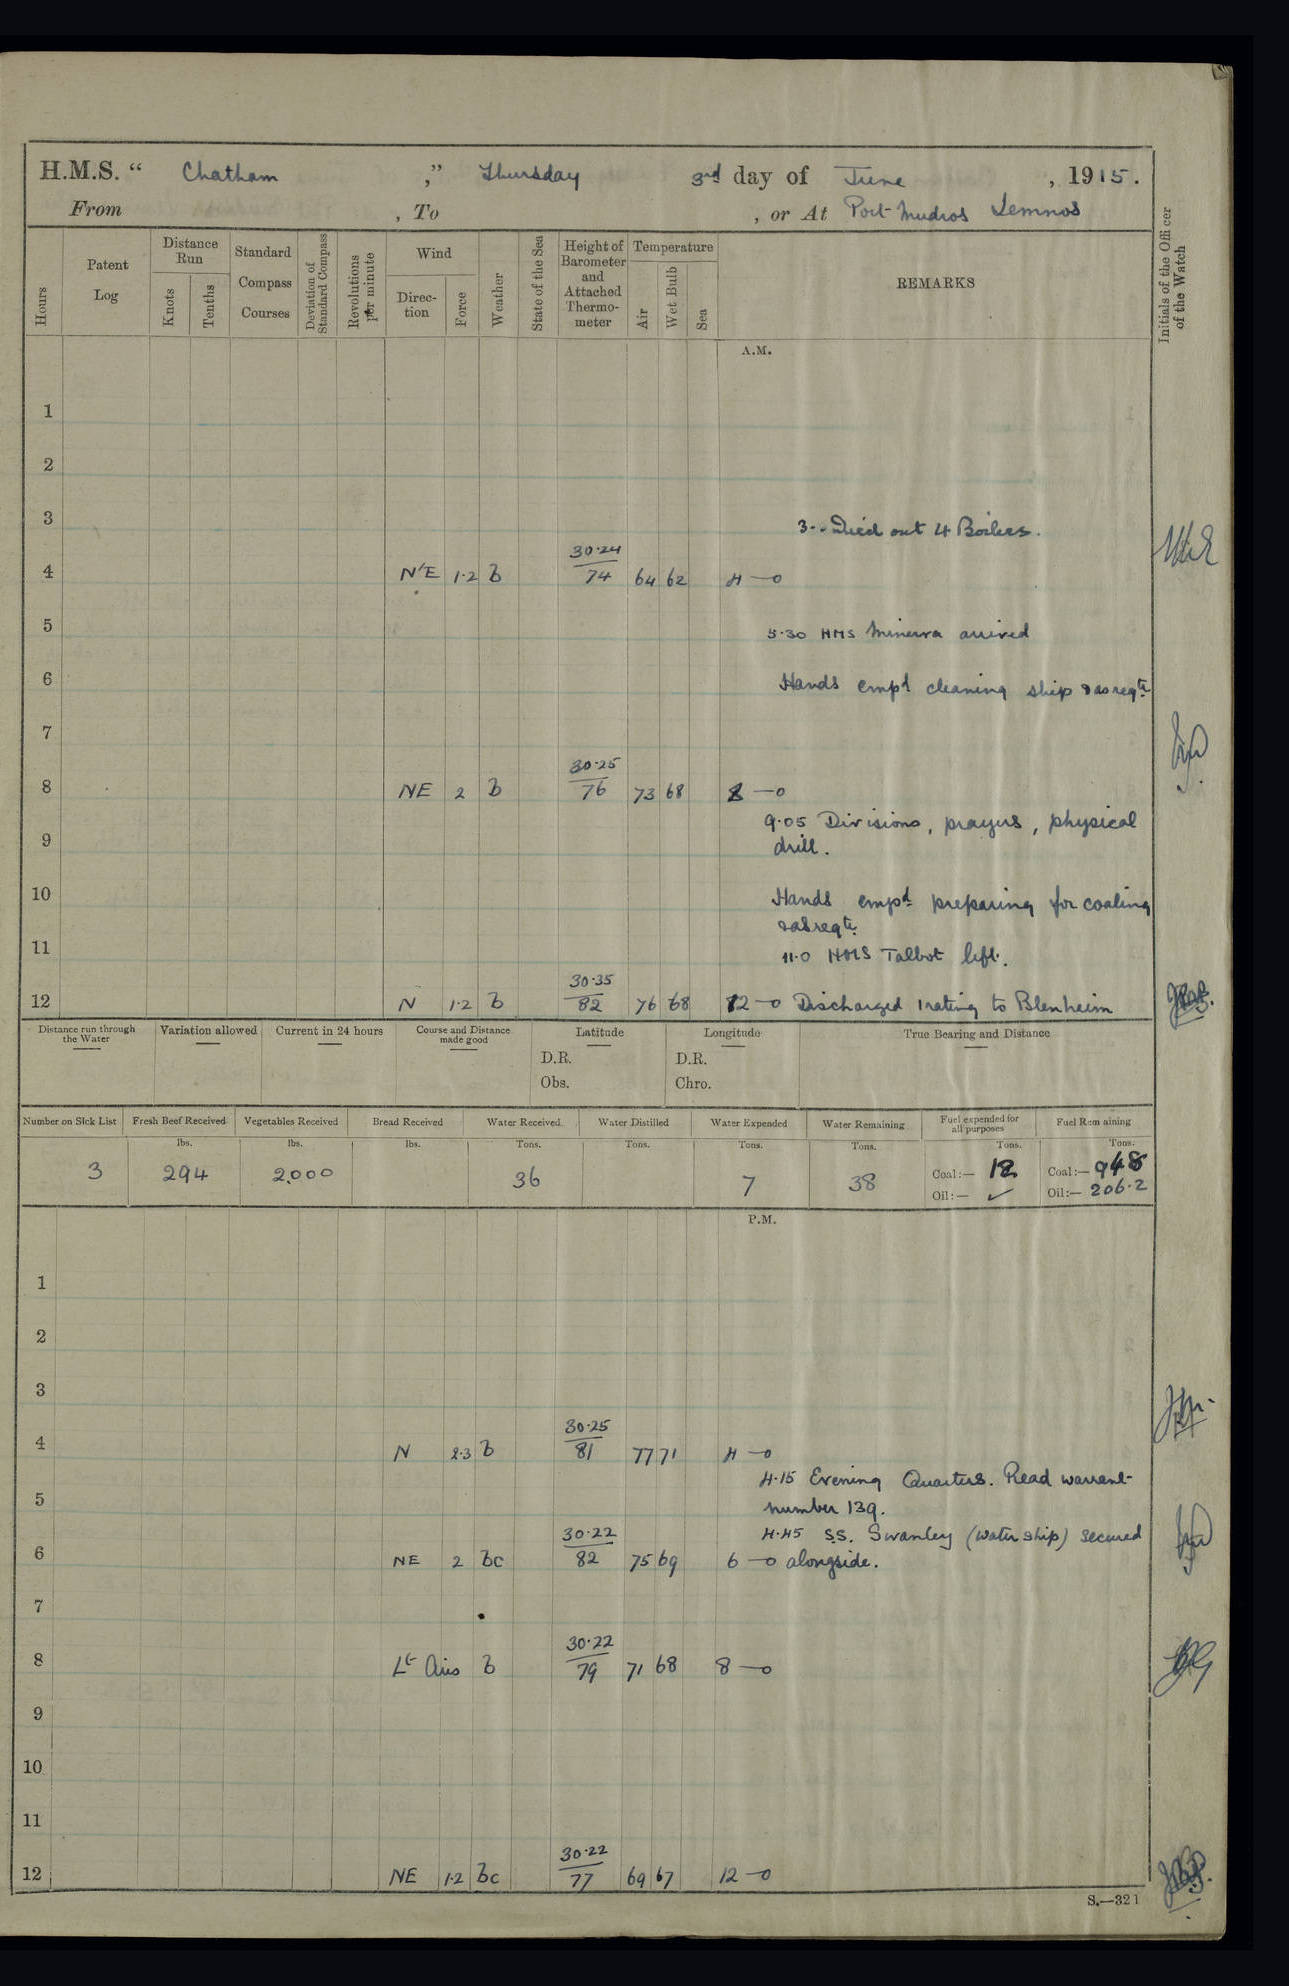 H.M.S. " Chatham ," Thursday 3rd day of June , 1915.
From , To , or At Port Mudros Lemnos
Hours
Patent Log
Distance Run
Knots
Tenths
Standard Compass Courses
Deviation of Standard Compass
Revolutions per minute
Wind
Direc-tion
Force
Weather
State of the Sea
Height of Barometer and Attached Thermo-meter
Temperature
Air
Wet Bulb
Sea
REMARKS
Initials of the Officer of the Watch
A.M.
1
2
3 3-. Died out 4 Boilers.
30.24
4 N'E 1.2 b 74 64 62 4 —o
5 5.30 HMS Minerva arrived
6 Hands empd cleaning ship & as reqte
7
30.25
8 NE 2 b 76 73 68 8 —o
9.05 Divisions, prayers, physical
9 drill.
10 Hands empd preparing for coaling
& as reqte.
11 11.0 HMS Talbot left.
30.35
12 N 1.2 b 82 76 68 12 —o Discharged 1 rating to Blenheim
Distance run through the Water
Variation allowed
Current in 24 hours
Course and Distance made good
Latitude
D.R.
Obs.
Longitude
D.R.
Chro.
True Bearing and Distance
Number on Sick List Fresh Beef Received Vegetables Received Bread Received Water Received Water Distilled Water Expended Water Remaining Fuel expended for all purposes Fuel Remaining
lbs. lbs. lbs. Tons. Tons. Tons. Tons. Tons. Tons.
3 294 2,000 36 7 38 Coal:— 12 Coal:— 948
Oil:— ✓ Oil:— 206.2
P.M.
1
2
3
30.25
4 N 2.3 b 81 77 71 4 —o
4.15 Evening Quarters. Read warrant
5 number 139.
30.22 4.45 S.S. Swanley (water ship) secured
6 NE 2 bc 82 75 69 6 —o alongside.
7
30.22
8 Lt Airs b 79 71 68 8 —o
9
10
11
30.22
12 NE 1.2 bc 77 69 67 12 —o
S.—321